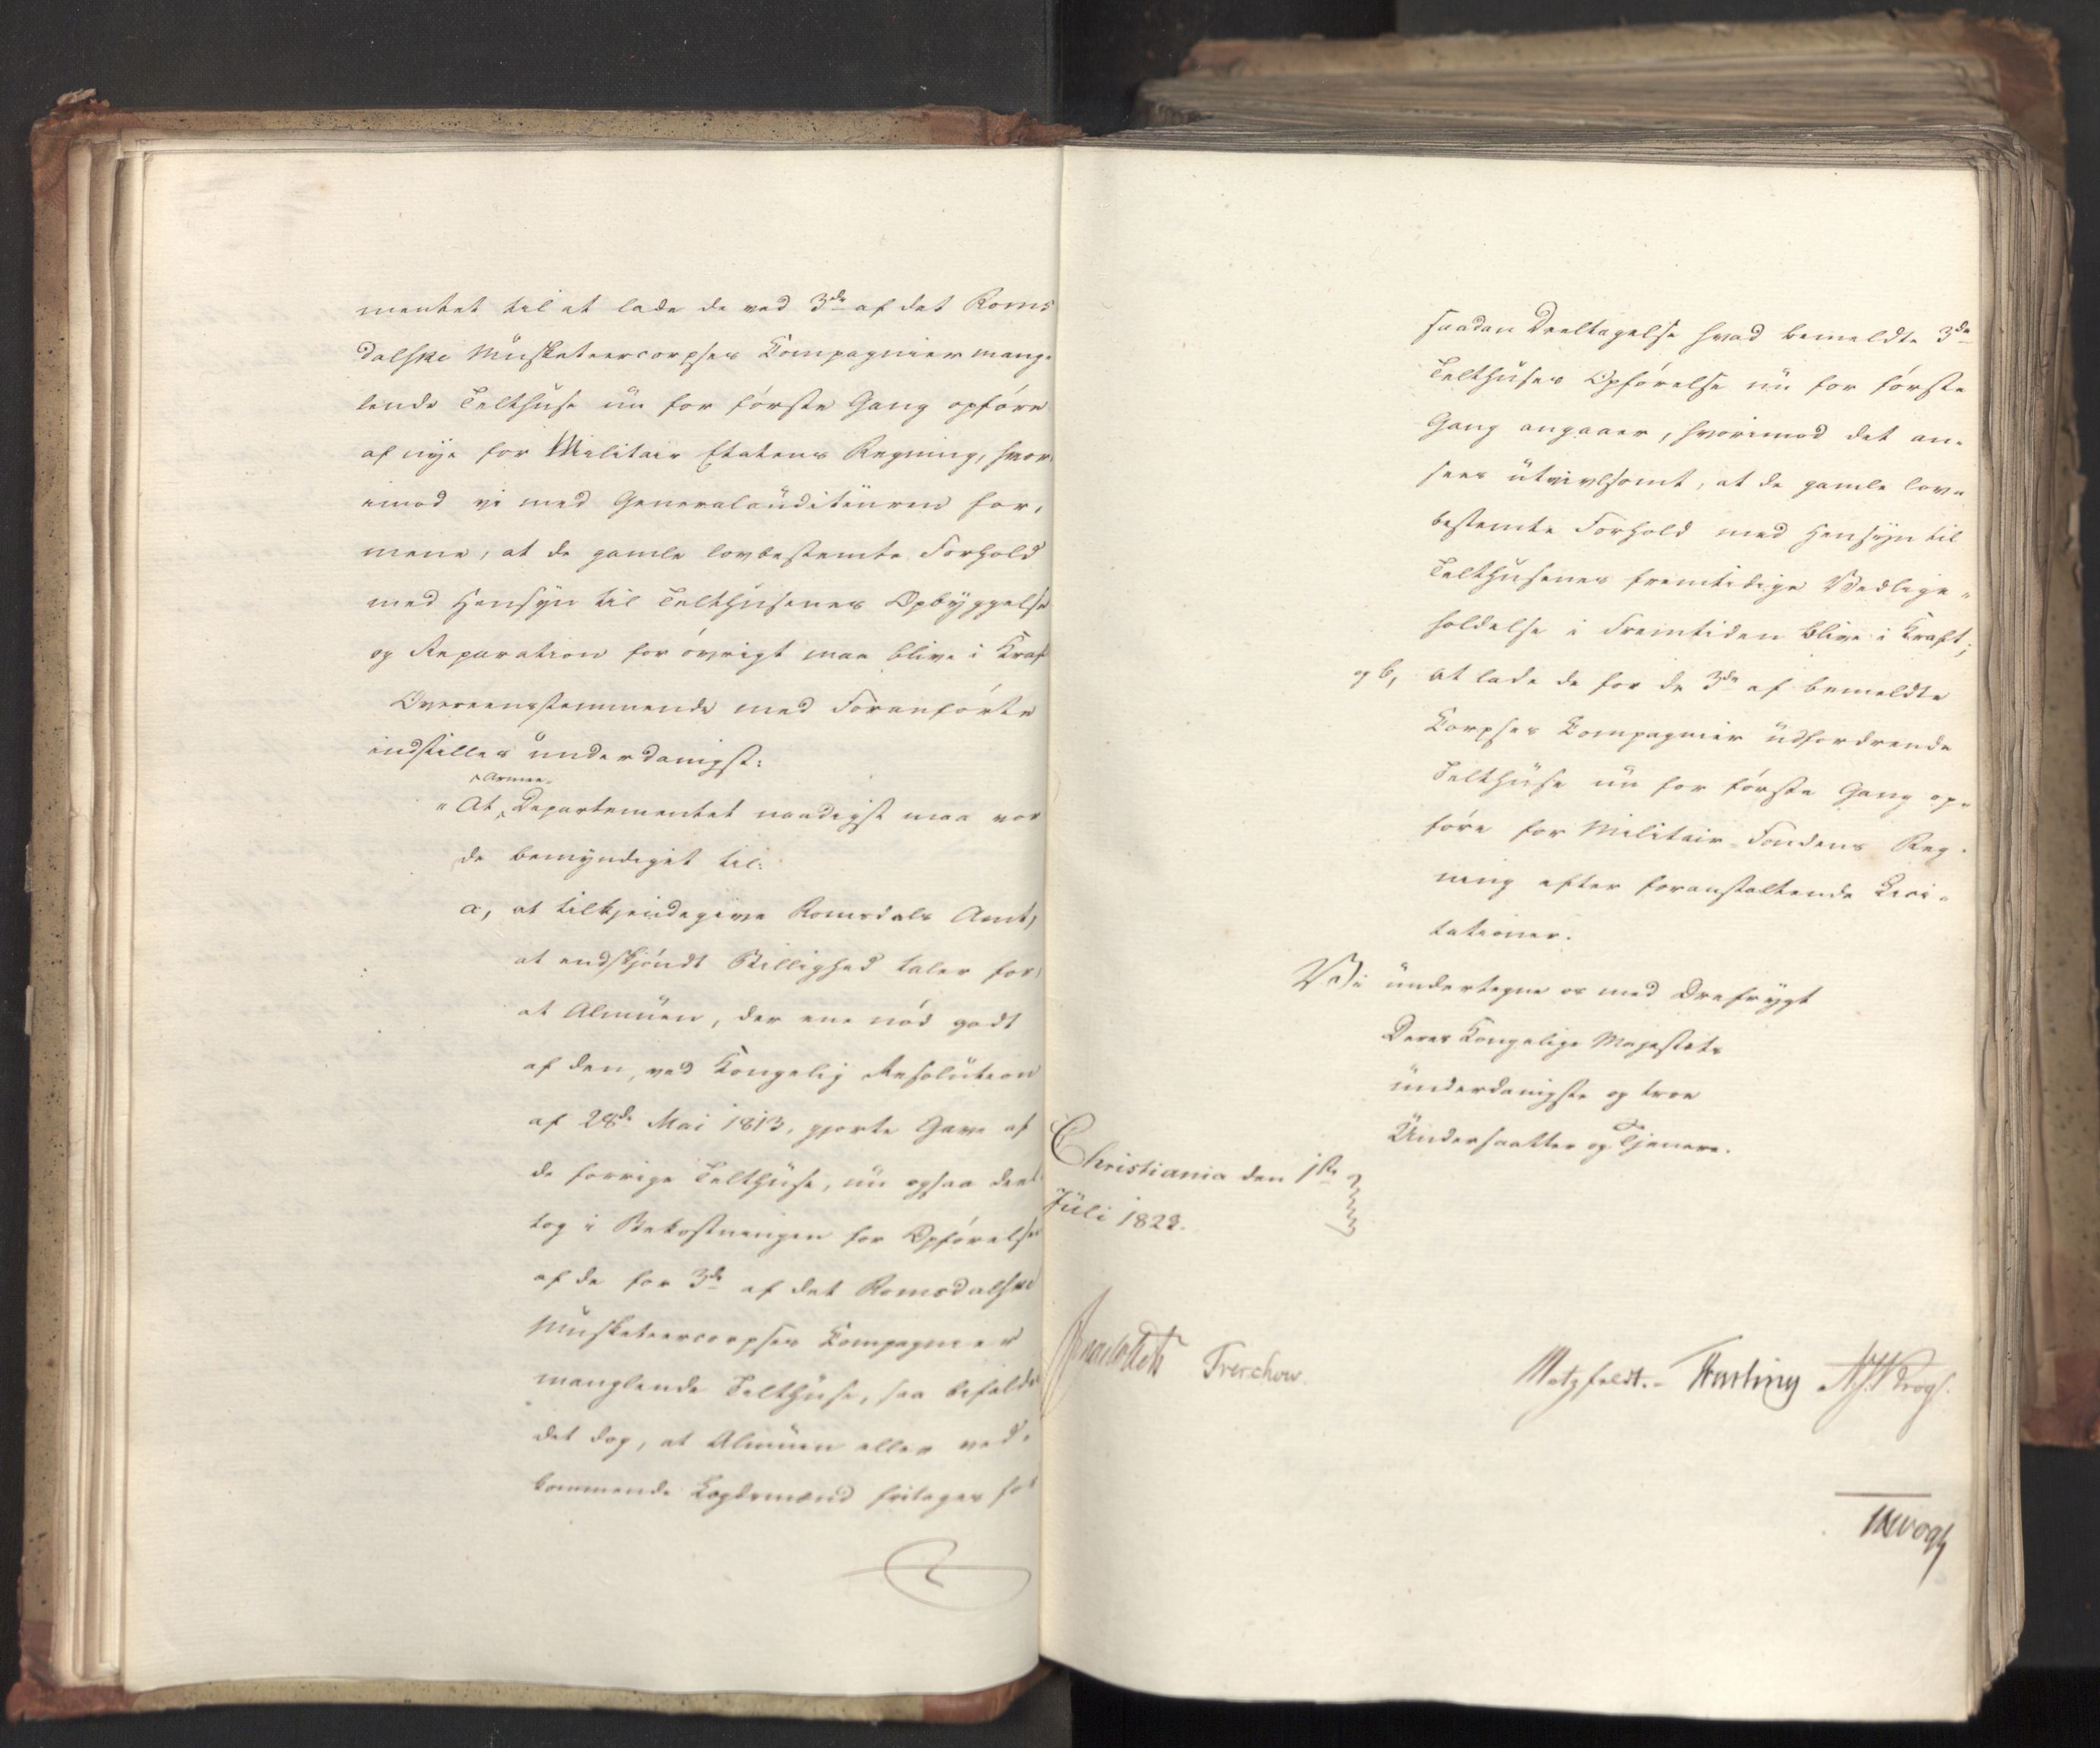 mentet til at lade de ved 3de af det Roms
dalske Musketeercorpses Compagnier mang-
lende Telthuse nu for første Gang opføre
af nye for Militair Etatens Regning, hvor-
imod vi med Generalauditeuren for-
mene, at de gamle lovbestemte Forhold
med Hensyn til Telthusenes Opbyggelse
og Reparation for øvrigt maa blive i Kraft
Overeensstemmende med Foranførte
indstilles underdanigst:
Armee-
"At Departementet naadigst maa vor
de bemyndiget til:
a, at tilkjendegive Romsdals Amt,
at endskjøndt Billighed taler for,
at Almuen, der ene nød godt
af den, ved Kongelig Resolution
af 28de Mai 1813, gjorte Gave af
de forrige Telthuse, nu ogsaa deel-
tog i Bekostningen for Opførelse
af de for 3de af det Romsdalske
Musketeercorpses Compagnier
manglende Telthuse, saa befaldes
det dog, at Almuen eller ved-
kommende Lægdsmænd fritages for
saadan Deeltagelse hvad bemeldte 3de
Telthuses Opførelse nu for første
Gang angaaer, hvorimod det an-
sees utvivlsomt, at de gamle lov-
bestemte Forhold med Hensyn til
Telthusenes fremtidige Vedlige-
holdelse i Fremtiden blive i Kraft;
og b, at lade de for de 3de af bemeldte
Corpses Compagnier udfordrende
Telthuse nu for første Gang op-
føre for Militair-Fondens Reg-
ning efter foranstaltende Lici-
tationer.
Vi undertegne os med Ærefrygt
Deres Kongelige Majestets
underdanigste og troe
Undersaatter og Tjenere.
Christiania den 1ste
Juli 1822.
Treschow.
Motzfeldt. Fasting